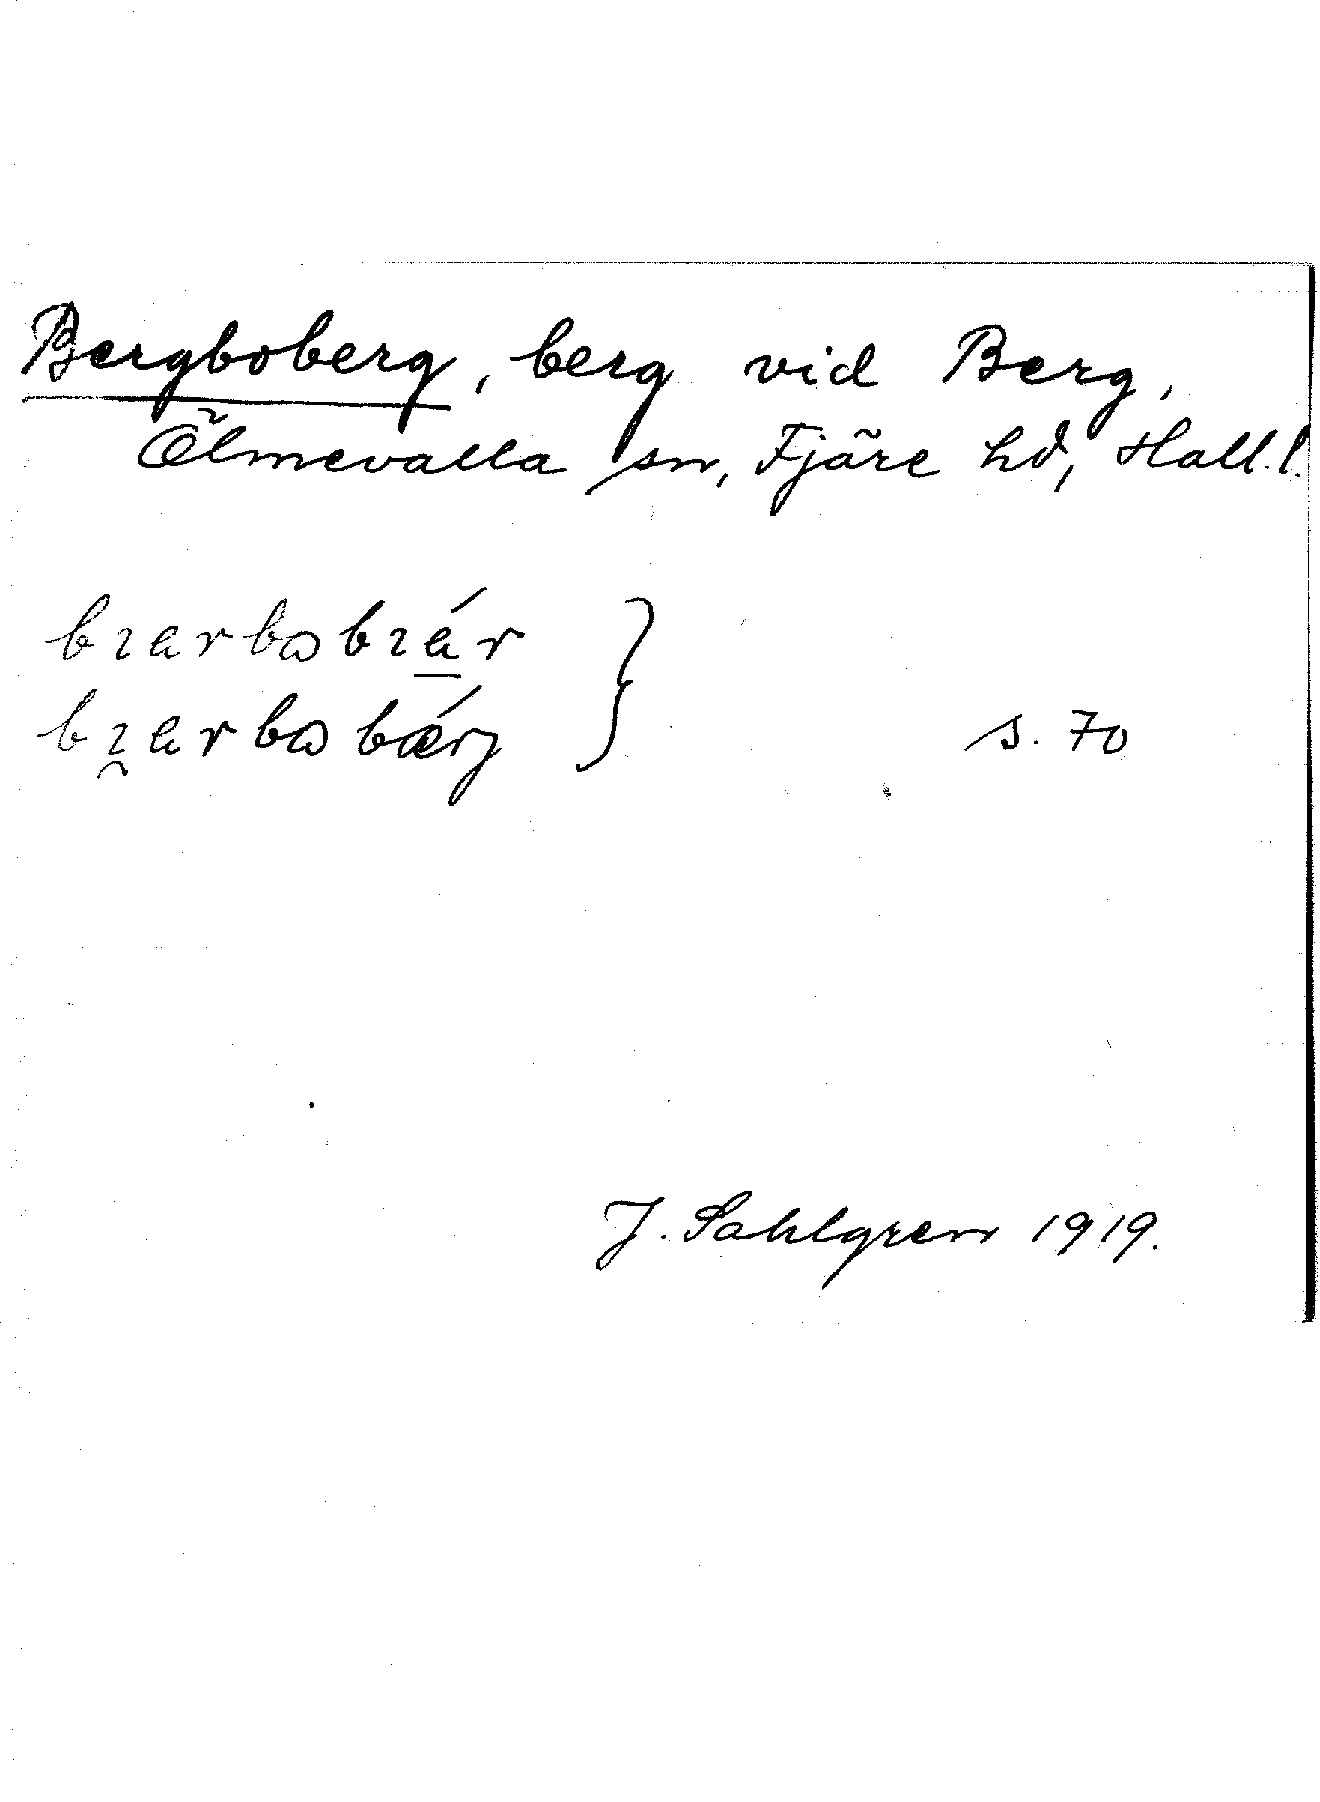 Bergboberg, berg vid Berg,
Ölmevalla sn, Fjäre hd, Hall.l.
bɿarbɷbɿár
bɿarbɷbærj
s. 70
J. Sahlgren 1919.